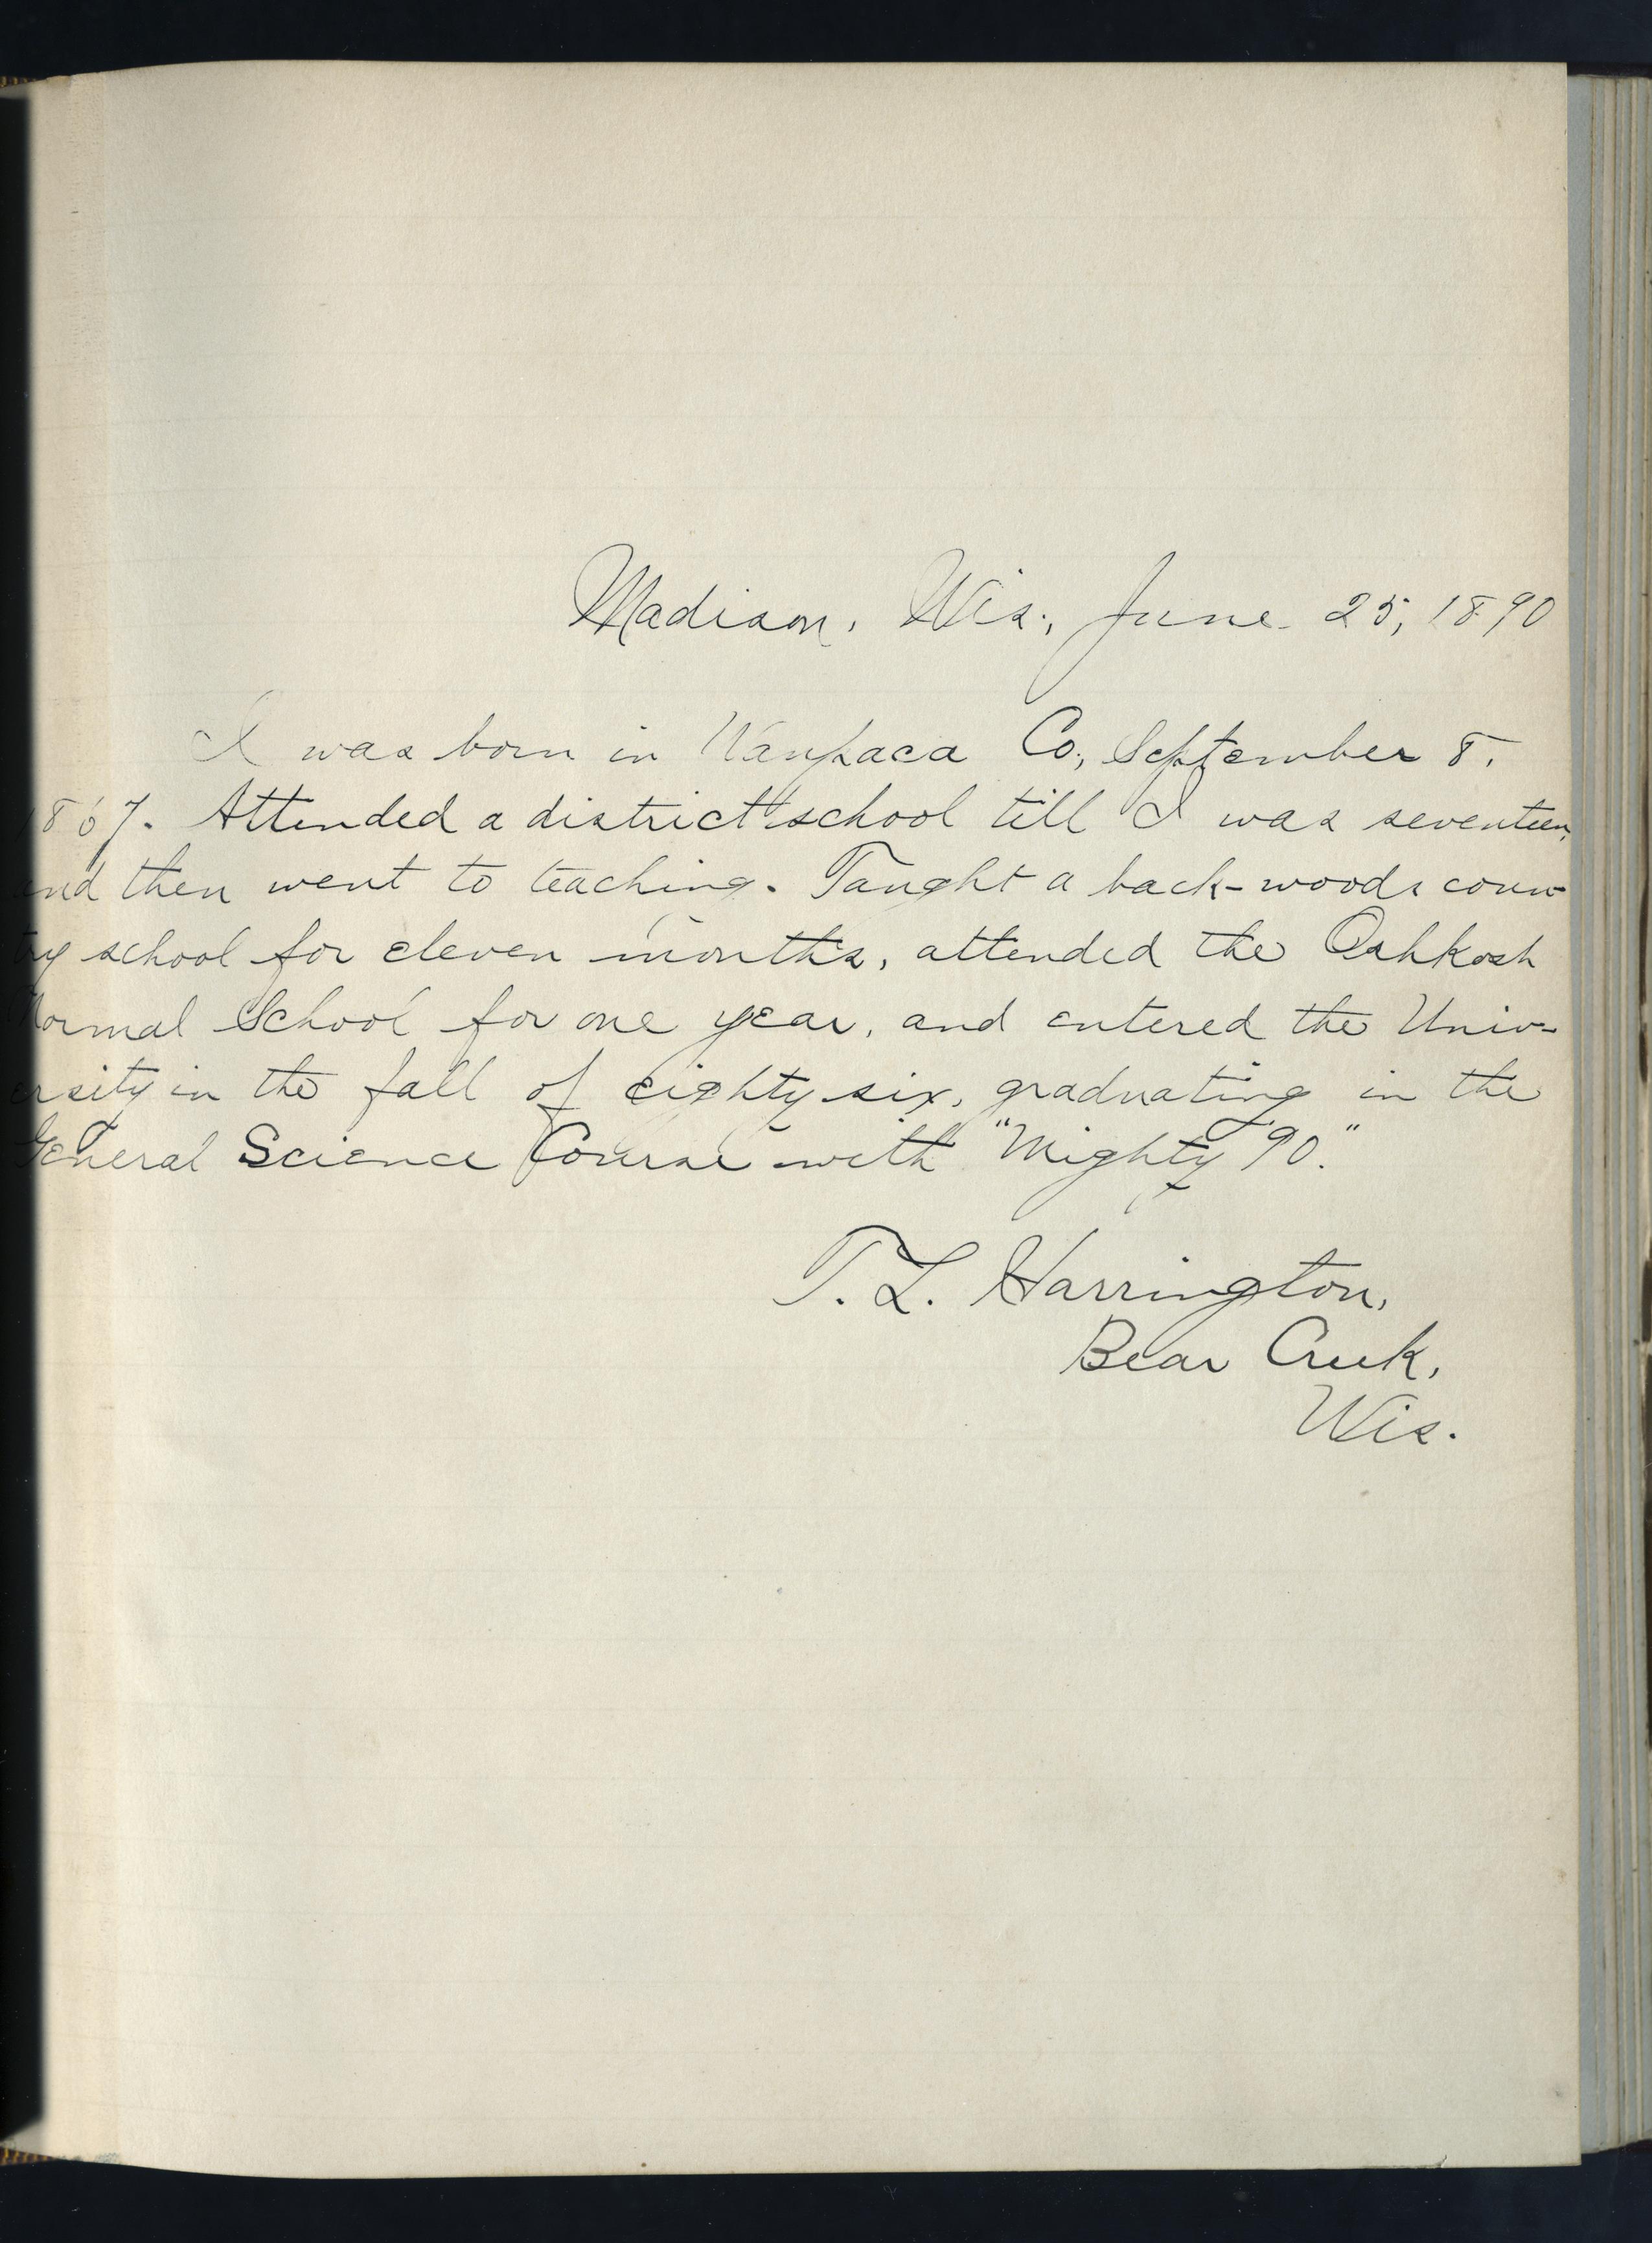 Madison, Wis., June 25, 1890
I was born in Waupaca Co., September 8,
1867. Attended a district school till I was seventeen,
and then went to teaching. Taught a back-woods coun-
try school for eleven months, attended the Oshkosh
Normal School for one year, and entered the Univ-
ersity in the fall of eighty six, graduating in the
General Science Course with "Mighty '90."
T. L. Harrington,
Bear Creek,
Wis.